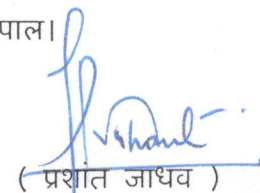 पाल।
( प्रशांत जाधव )